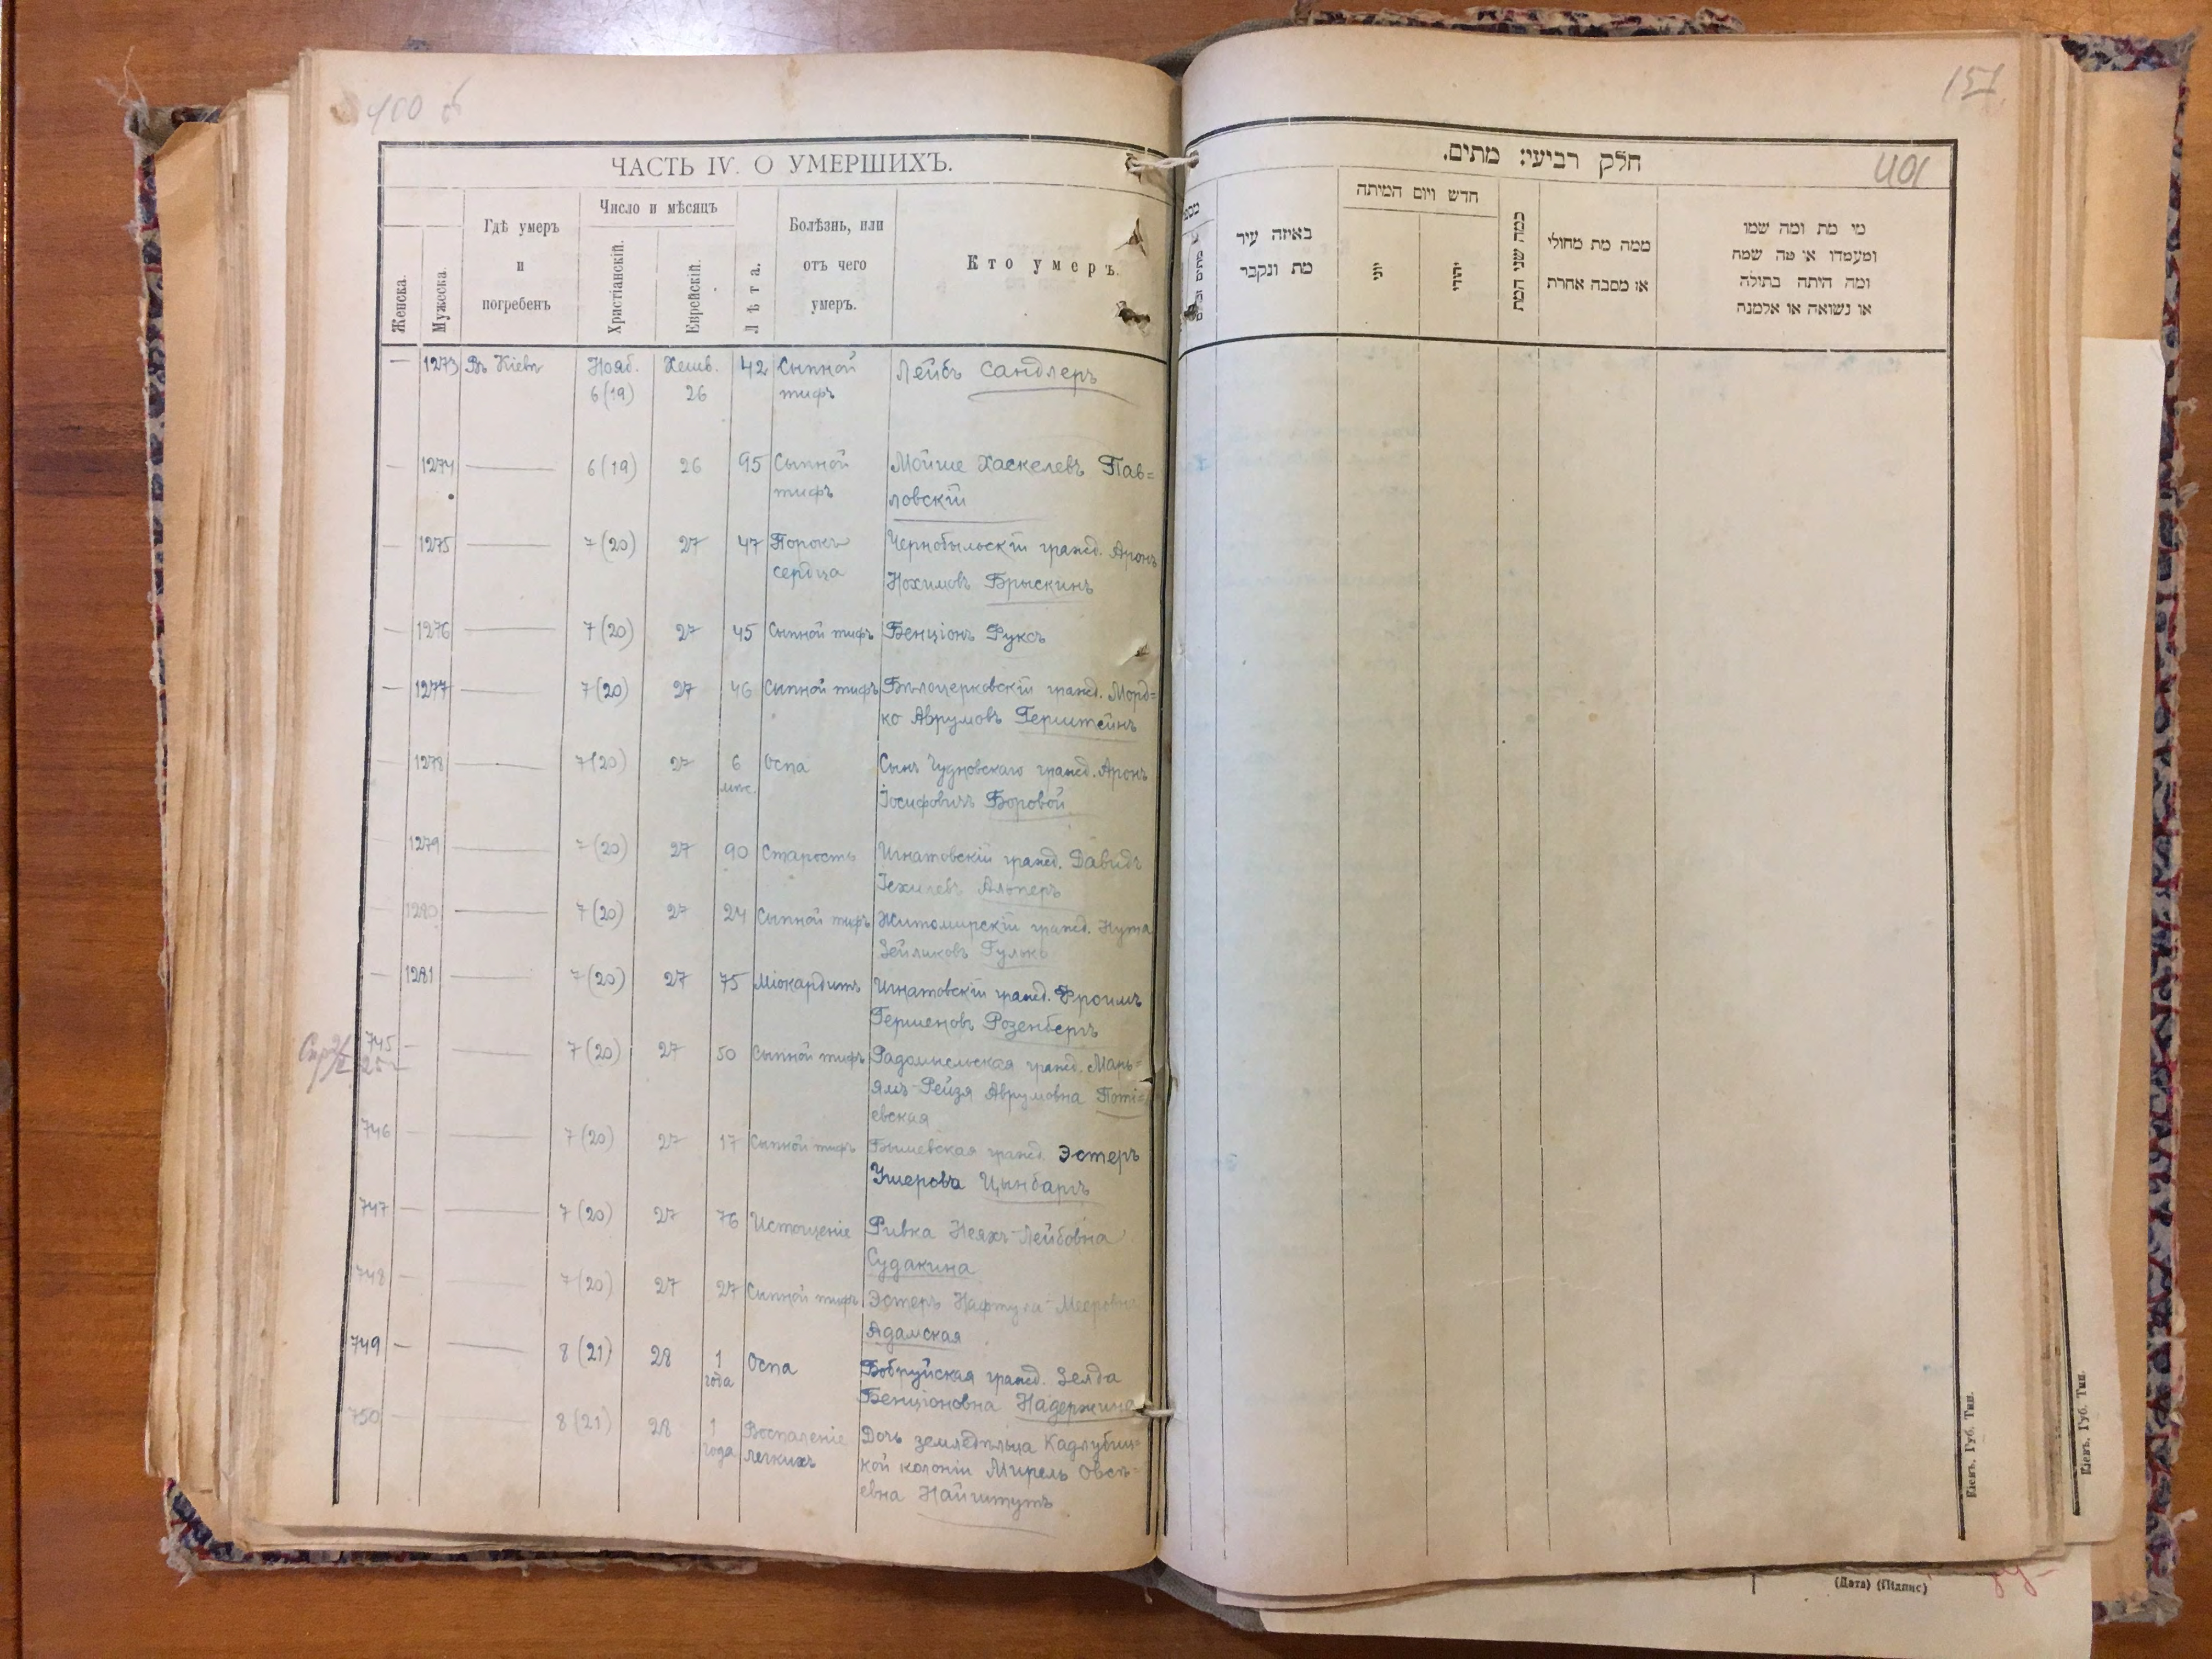 400 б
ЧАСТЬ IV. О УМЕРШИХЪ.
Женска.
Мужеска.
Гдѣ умеръ
и
погребенъ
Число и мѣсяцъ
Христіанскій.
Еврейскій.
Лѣта.
Болѣзнь, или
отъ чего
умеръ.
Кто умеръ.
— 1273 Въ Кіевѣ Нояб. Хешв. 42 Сыпной Лейбъ Сандлеръ
6 (19) 26 тифъ
— 1274 — 6 (19) 26 95 Сыпной Мойше Хаскелевъ Пав=
тифъ ловскій
— 1275 — 7 (20) 27 47 Порокъ Чернобыльскій гражд. Аронъ
сердца Нохимовъ Брыскинъ
— 1276 — 7 (20) 27 45 Сыпной тифъ Бенціонъ Фуксъ
— 1277 — 7 (20) 27 46 Сыпной тифъ Бѣлоцерковскій гражд. Морд=
ко Аврумовъ Герштейнъ
— 1278 — 7 (20) 27 6 Оспа Сынъ Чудновскаго гражд. Аронъ
мѣс. Іосифовичъ Боровой
1279 — 7 (20) 27 90 Старость Игнатовскій гражд. Давидъ
Іехилевъ Альперъ
— 1280 — 7 (20) 27 24 Сыпной тифъ Житомирскій гражд. Нута
Зейликовъ Гулько
— 1281 — 7 (20) 27 75 Міокардитъ Игнатовскій гражд. Фроимъ
Гершеновъ Розенбергъ
745 — — 7 (20) 27 50 Сыпной тифъ Радомысльская гражд. Марь=
ямъ-Рейзя Аврумовна Поті=
евская
746 — — 7 (20) 27 17 Сыпной тифъ Бышевская гражд. Эстеръ
Ушерова Цынбаргъ
747 — — 7 (20) 27 76 Истощеніе Ривка Неяхъ-Лейбовна
Судакина
748 — — 7 (20) 27 27 Сыпной тифъ Эстеръ Нафтула-Мееровна
Адамская
749 — — 8 (21) 28 1 Оспа Бобруйская гражд. Зелда
года Бенціоновна Надержина
750 — — 8 (21) 28 1 Воспаленіе Дочь земледѣльца Кадлубиц=
года легкихъ кой колоніи Мирель Овсѣ=
евна Найштутъ
151
401
חלק רביעי: מתים.
באיזה עיר
מת ונקבר
חדש ויום המיתה
יוני
יהודי
כמה שני המת
ממה מת מחולי
או מסבה אחרת
מי מת ומה שמו
ומעמדו או מה שמה
ומה היתה בתולה
או נשואה או אלמנה
Кіевъ, Губ. Тип.
Кіевъ, Губ. Тип.
(Дата) (Підпис)